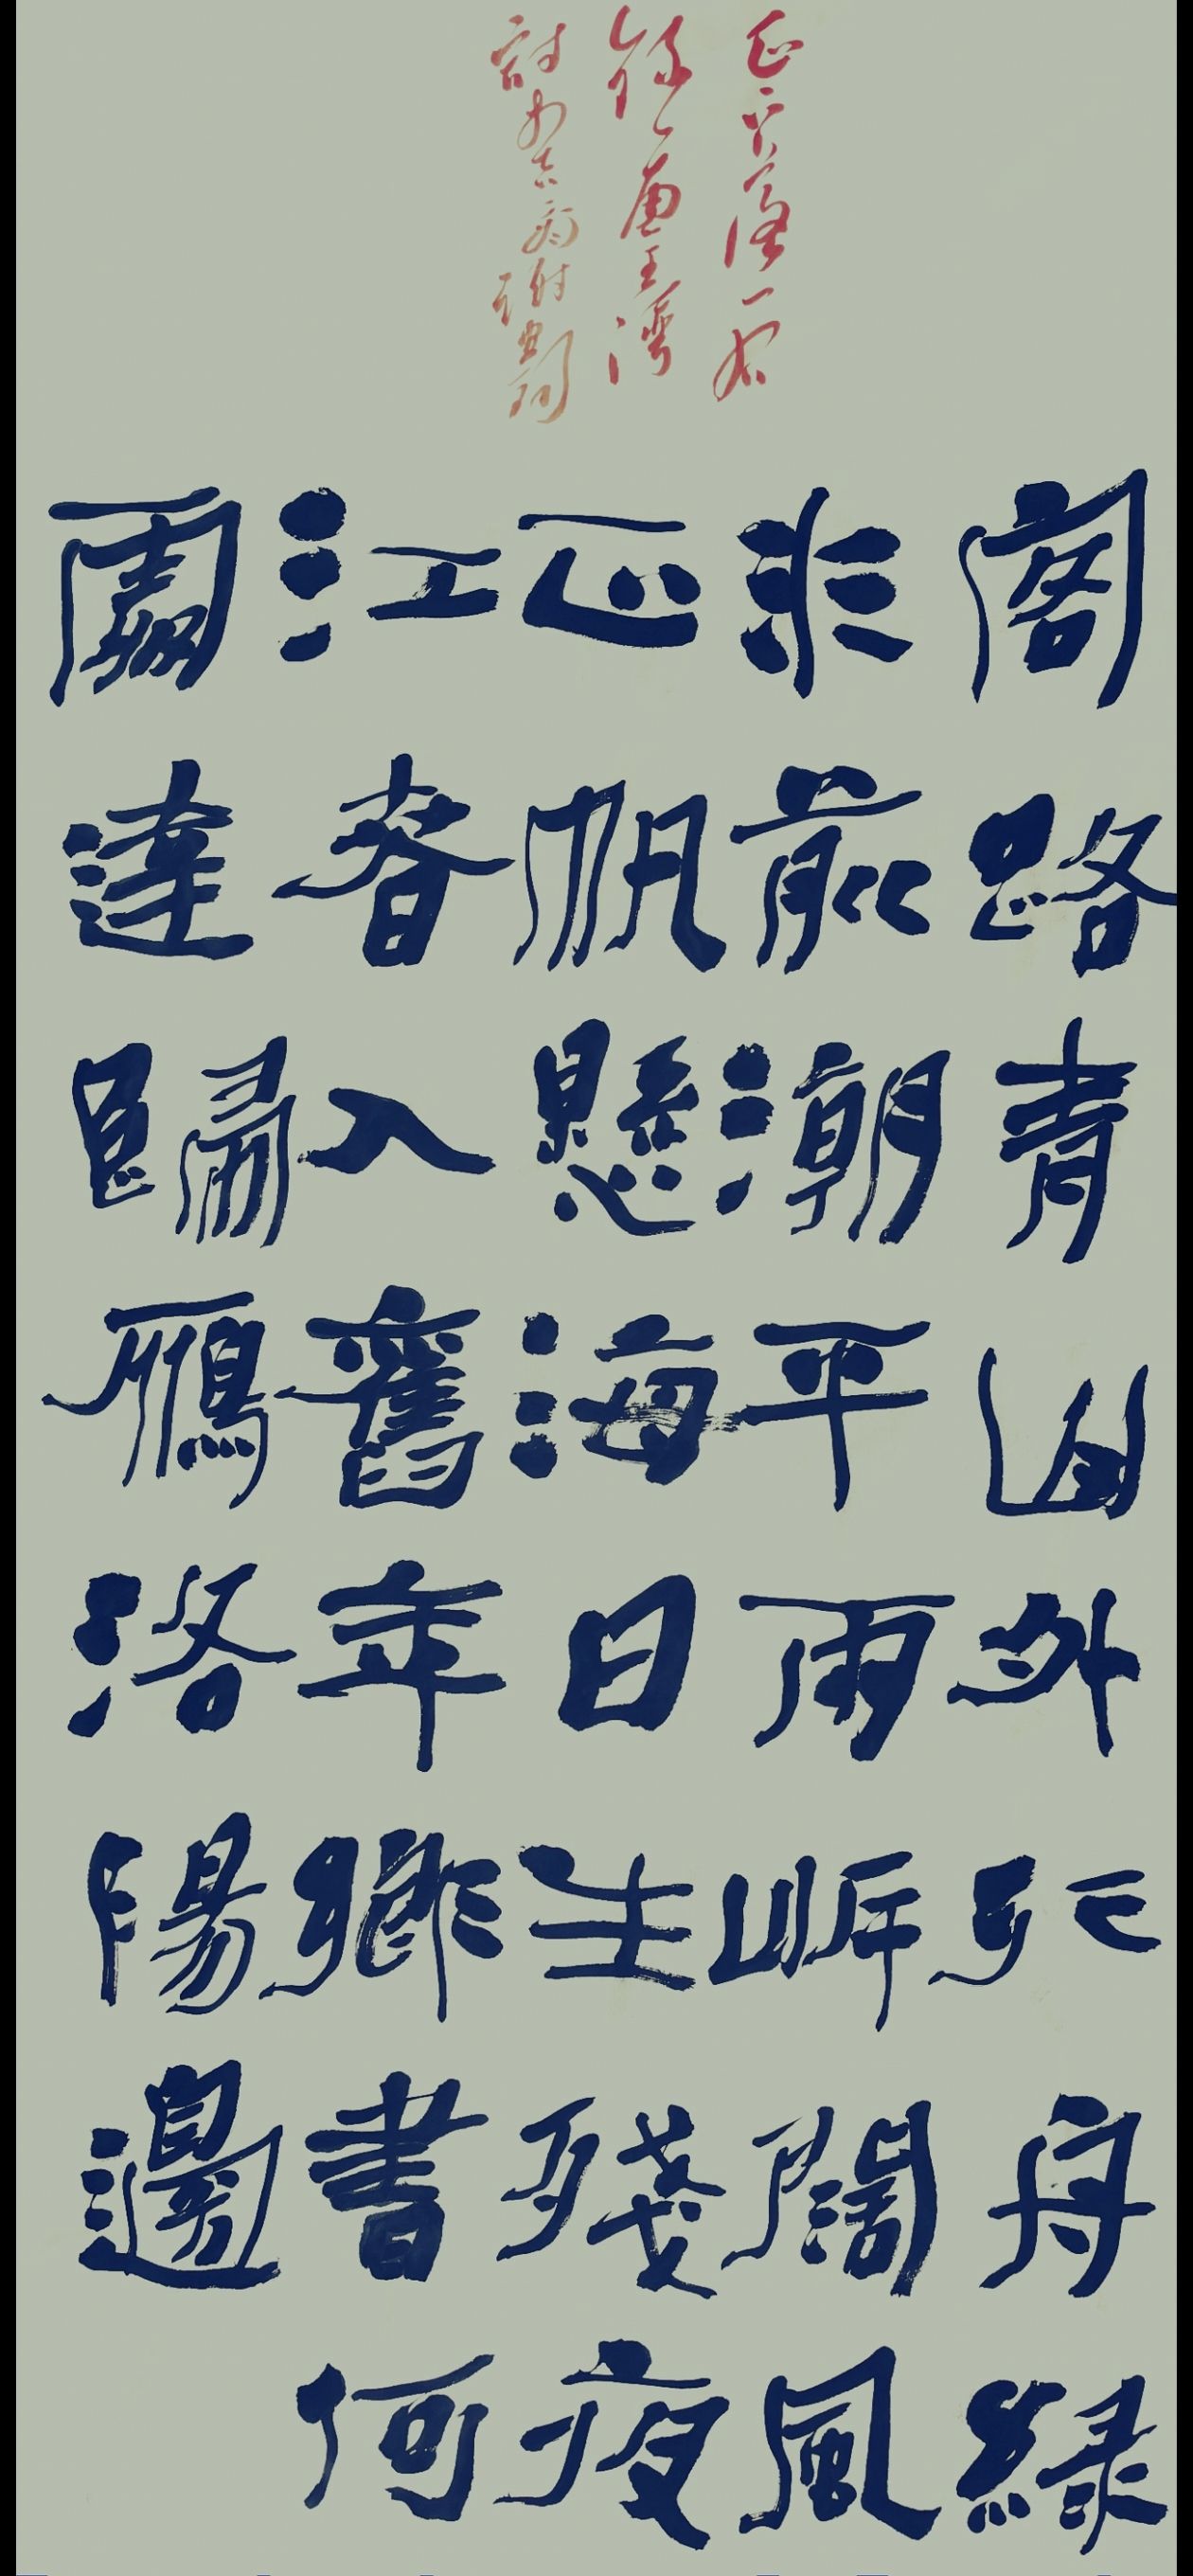 客路青山外行舟緑
水前潮平兩岸闊風
正帆懸海日生殘夜
江春入舊年鄉書何
處達歸雁洛陽邊
正下落一
錄唐王灣